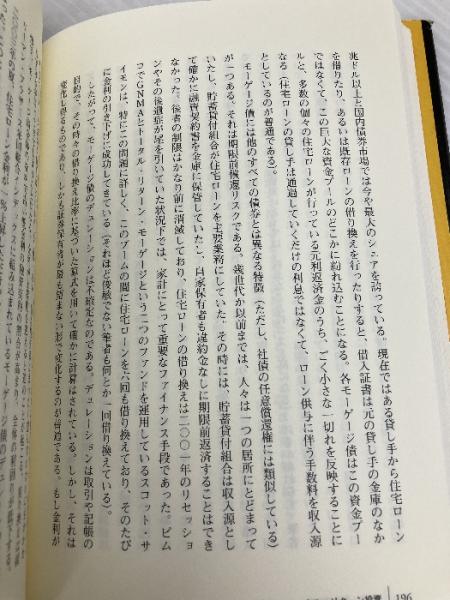 兆ドル以上と国内債券市場では今や最大のシェアを誇っている。現在ではある貸し手から住宅ローン
を借りたり、あるいは既存ローンの借り換えを行ったりすると、借入証書は元の貸し手の金庫のなか
ではなくて、この巨大な資金プールのどこかに紛れ込むことになる。各モーゲージ債はこの資金プー
ルと、多数の個々の住宅ローンが行っている元利返済金のうち、ごく小さな一切れを反映することに
なる（住宅ローンの貸し手は通過していくだけの利息ではなくて、ローン供与に伴う手数料を収入源
としているのが普通である）。
モーゲージ債には他のすべての債券とは異なる特徴（ただし、社債の任意償還権には類似している）
が一つある。それは期限前償還リスクである。幾世代か以前までは、人々は一つの居所にとどまって
いたし、貯蓄貸付組合が住宅ローンを主要業務にしていた。その時には、貯蓄貸付組合は収入源とし
て確かに融資契約書を金庫に保管していたし、自家保有者も違約金なしに期限前返済することはでき
なかった。後者の制限はかなり前に消滅しており、住宅ローンの借り換えは二〇〇一年のリセッショ
ンやその後遺症が尾を引いていた状況下では、家計にとって重要なファイナンス手段であった。ピム
コでGNMAとトータル・リターン・モーゲージという二つのファンドを運用しているスコット・サ
イモンは、特にこの問題に詳しく、このブームの間に住宅ローンを六回も借り換えており、そのたび
に金利の引き下げに成功してきている（それほど俊敏でない筆者も何とか一回借り換えている）。
したがって、モーゲージ債のデュレーションは不確定なのである。デュレーションは取引や記帳の
目的で、その時々の借り換え比率に基づいた算式を用いて確かに計算はされている。しかし、それは
変化し得るものであり、しかも証券保有者が最も望まない形で変化するのが普通である。もし金利が
196